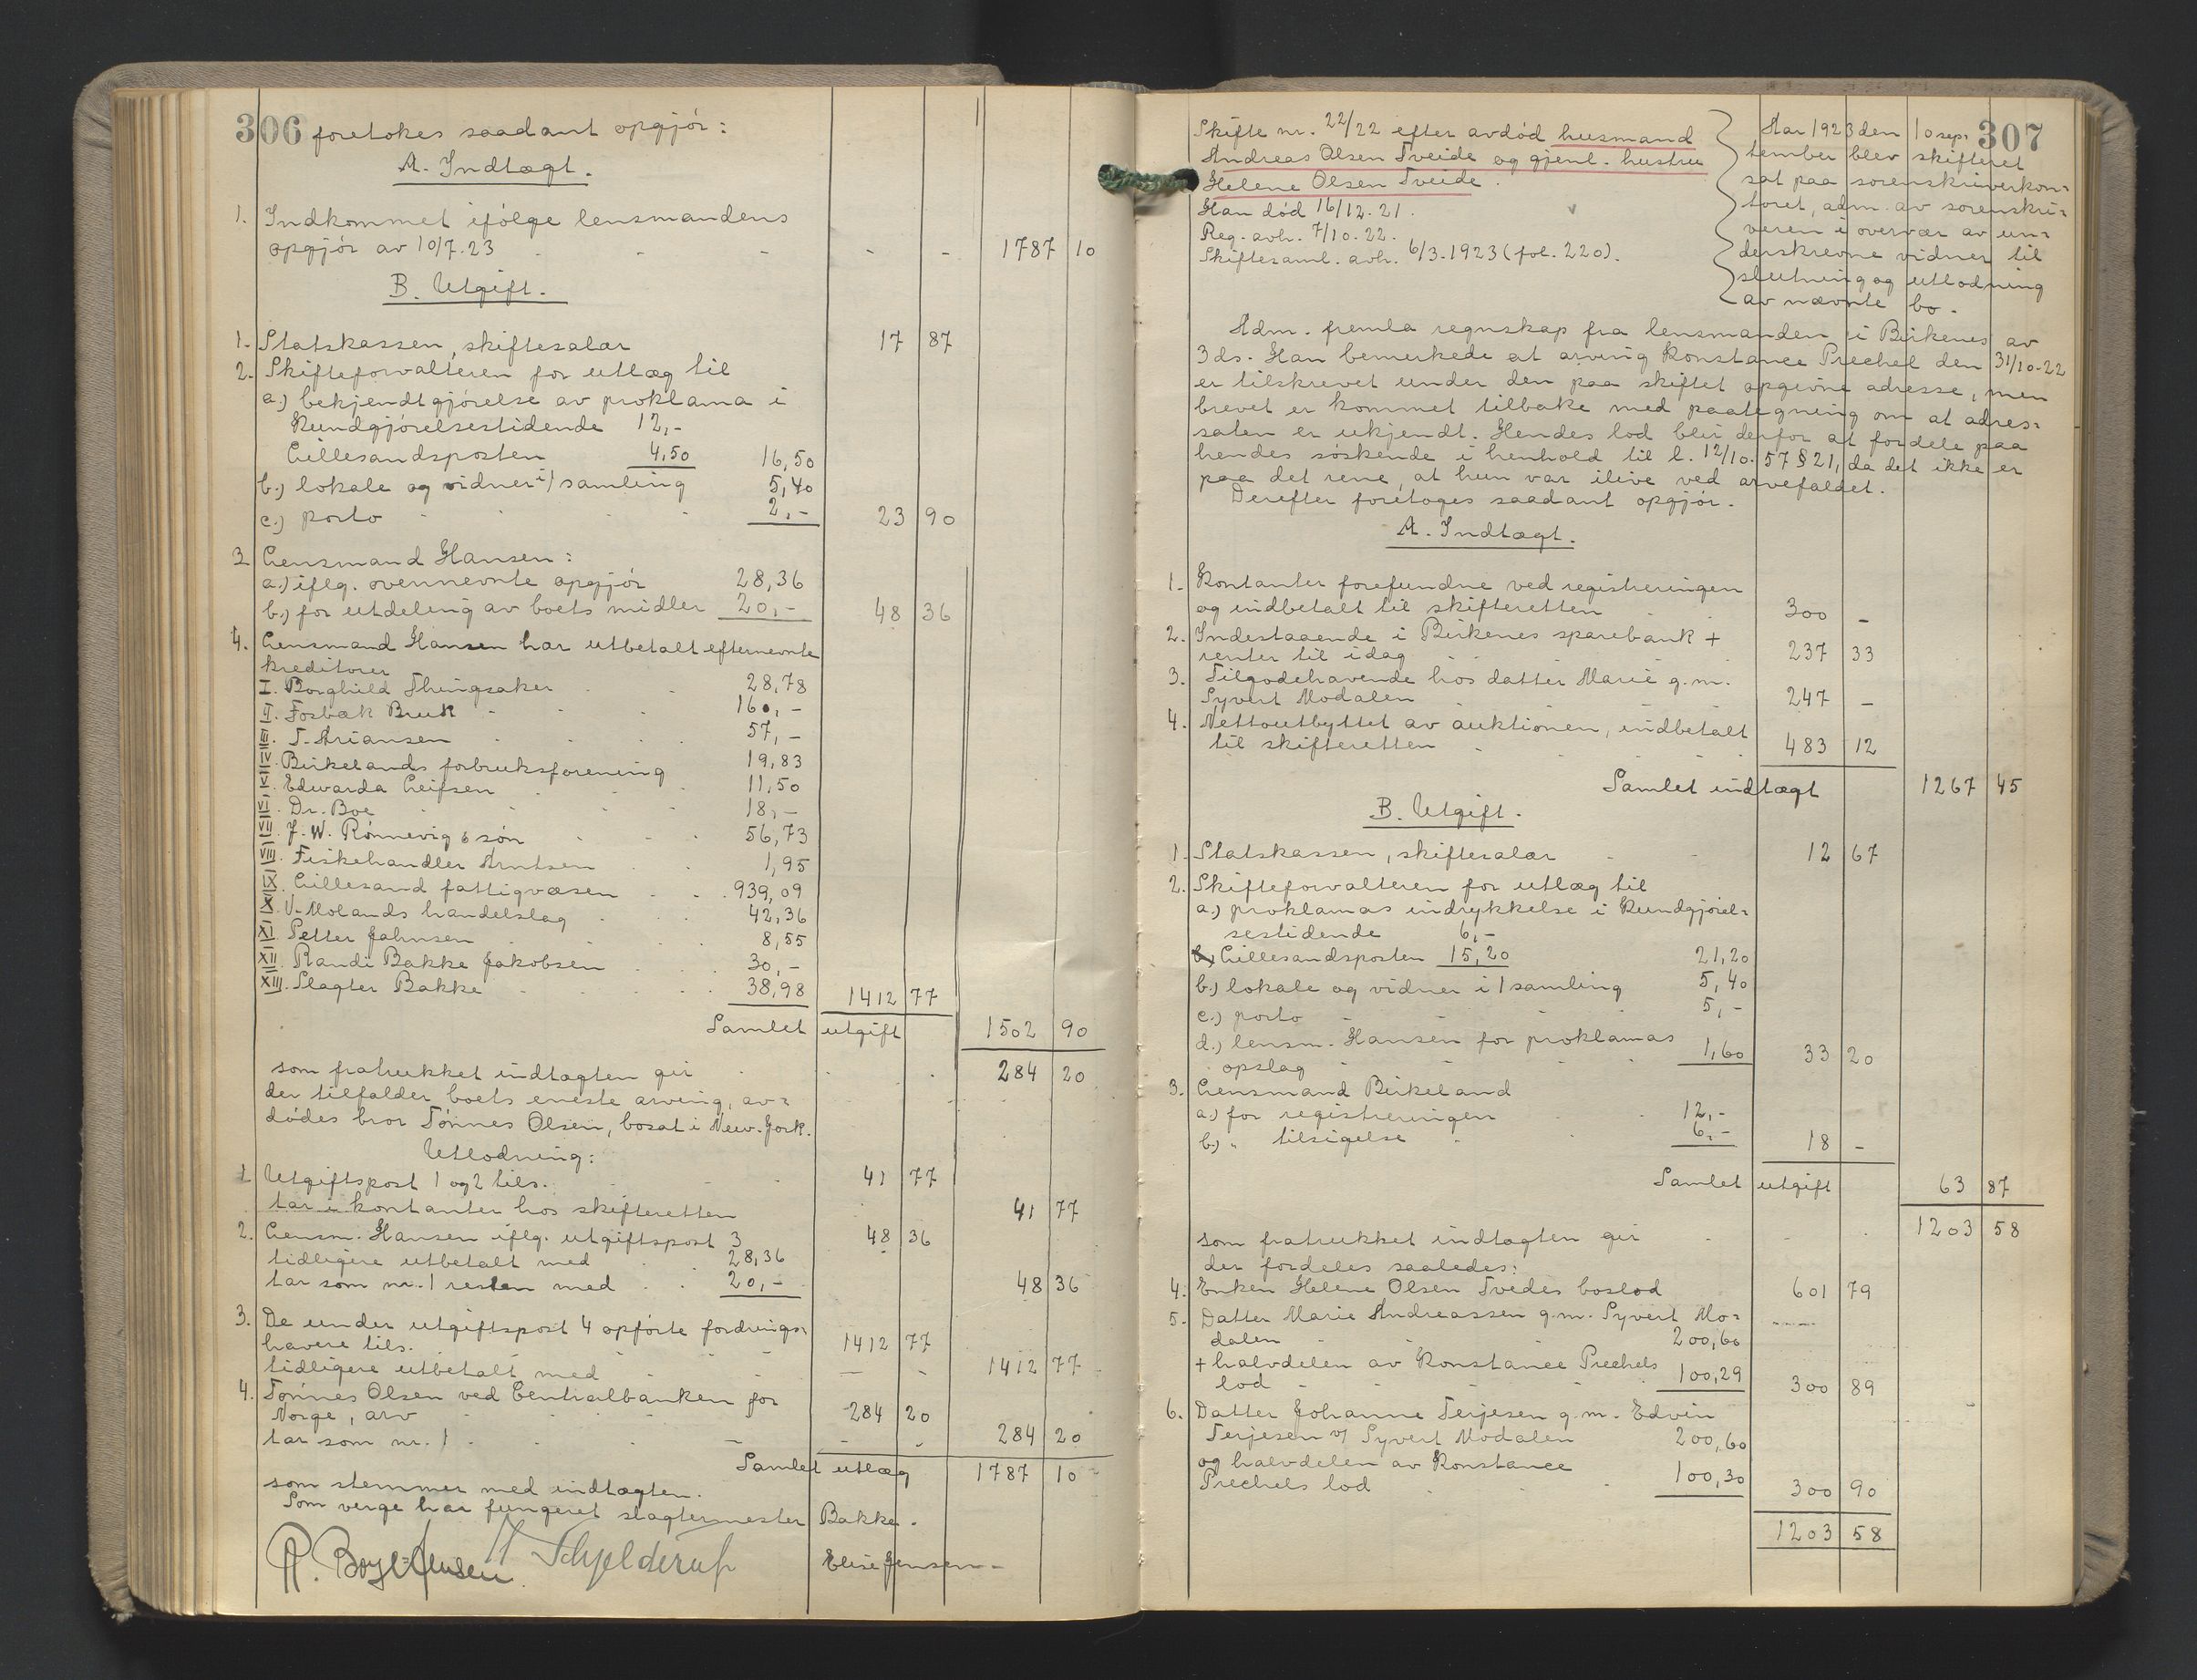 306 foretokes saadant opgjór:
A. Indtægt.
1. Indkommet ifólge lensmandens
opgjór av 10/7.23 - - - - 1787 10
B. Utgift.
1. Statskassen, skiftesalær 17 87
2. Skifteforvalteren for utlæg til
a.) bekjendtgjórelse av proklama i
Kundgjórelsestidende 12,-
Lillesandsposten 4,50 16,50
b.) lokale og vidner i 1 samling 5,40
c.) porto - - - 2,- 23 90
3. Lensmand Hansen:
a.) iflg. ovennevnte opgjór 28,36
b.) for utdeling av boets midler 20,- 48 36
4. Lensmand Hansen har utbetalt efternevnte
kreditorer
I. Borghild Thingsaker 28,78
II. Fosbæk Bruk 160,-
III. T. Ariansen 57,-
IV. Birkelands forbruksforening 19,83
V. Edvarda Leifsen 11,50
VI. Dr. Boe 18,-
VII. J. W. Rónnevig & són 56,73
VIII. Fiskehandler Arntsen 1,95
IX. Lillesand fattigvæsen 939,09
X. V. Molands handelslag 42,36
XI. Petter Jahnsen 8,55
XII. Randi Bakke Jakobsen 30,-
XIII. Slagter Bakke 38,98 1412 77
Samlet utgift 1502 90
som fratrukket indtægten gir 284 20
der tilfalder boets eneste arving, av=
dódes bror Tónnes Olsen, bosat i New-York.
Utlodning:
1. Utgiftspost 1 og 2 tils. 41 77
tar i kontanter hos skifteretten 41 77
2. Lensm. Hansen iflg. utgiftspost 3 48 36
tidligere utbetalt med 28,36
tar som nr. 1 resten med 20,- 48 36
3. De under utgiftspost 4 opfórte fordrings=
havere tils. 1412 77
tidligere utbetalt med 1412 77
4. Tónnes Olsen ved Centralbanken for
Norge, arv 284 20
tar som nr. 1 284 20
Samlet utlæg 1787 10
som stemmer med indtægten.
Som verge har fungeret slagtermester Bakke.
Schjelderup Elise Jensen
307
Skifte nr. 22/22 efter avdód husmand
Andreas Olsen Tveide og gjenl. hustru
Helene Olsen Tveide.
Han dód 16/12.21.
Reg. avh. 7/10.22.
Skiftesaml. avh. 6/3.1923 (fol. 220).
Aar 1923 den 10 sep=
tember blev skifteret
sat paa sorenskriverkon=
toret, adm. av sorenskri=
veren i overvær av un=
derskrevne vidner til
slutning og utlodning
av nævnte bo.
Adm. fremla regnskap fra lensmanden i Birkenes av
3 ds. Han bemerkede at arving Konstance Prechel den 31/10-22
er tilskrevet under den paa skiftet opgivne adresse, men
brevet er kommet tilbake med paategning om at adres=
saten er ukjendt. Hendes lod blir derfor at fordele paa
hendes sóskende i henhold til l. 12/10.57 § 21, da det ikke er
paa det rene, at hun var ilive ved arvefaldet.
Derefter foretoges saadant opgjór.
A. Indtægt.
1. Kontanter forefundne ved registreringen
og indbetalt til skifteretten 300 -
2. Indestaaende i Birkenes sparebank +
renter til idag 237 33
3. Tilgodehavende hos datter Marie g.m.
Syvert Modalen 247 -
4. Nettoutbyttet av auktionen, indbetalt
til skifteretten 483 12
Samlet indtægt 1267 45
B. Utgift.
1. Statskassen, skiftesalær 12 67
2. Skifteforvalteren for utlæg til
a.) proklamas indrykkelse i Kundgjórel=
sestidende 6,-
Lillesandsposten 15,20 21,20
b.) lokale og vidner i 1 samling 5,40
c.) porto 5,-
d.) lensm. Hansen for proklamas
opslag 1,60 33 20
3. Lensmand Birkeland
a.) for registreringen 12,-
b.) " tilsigelse 6,- 18 -
Samlet utgift 63 87
som fratrukket indtægten gir 1203 58
der fordeles saaledes:
4. Enken Helene Olsen Tvedes boslod 601 79
5. Datter Marie Andreassen g.m. Syvert Mo=
dalen 200,60
+ halvdelen av Konstance Prechels
lod 100,29 300 89
6. Datter Johanne Terjesen g.m. Edvin
Terjesen v/ Syvert Modalen 200,60
og halvdelen av Konstance
Prechels lod 100,30 300 90
1203 58